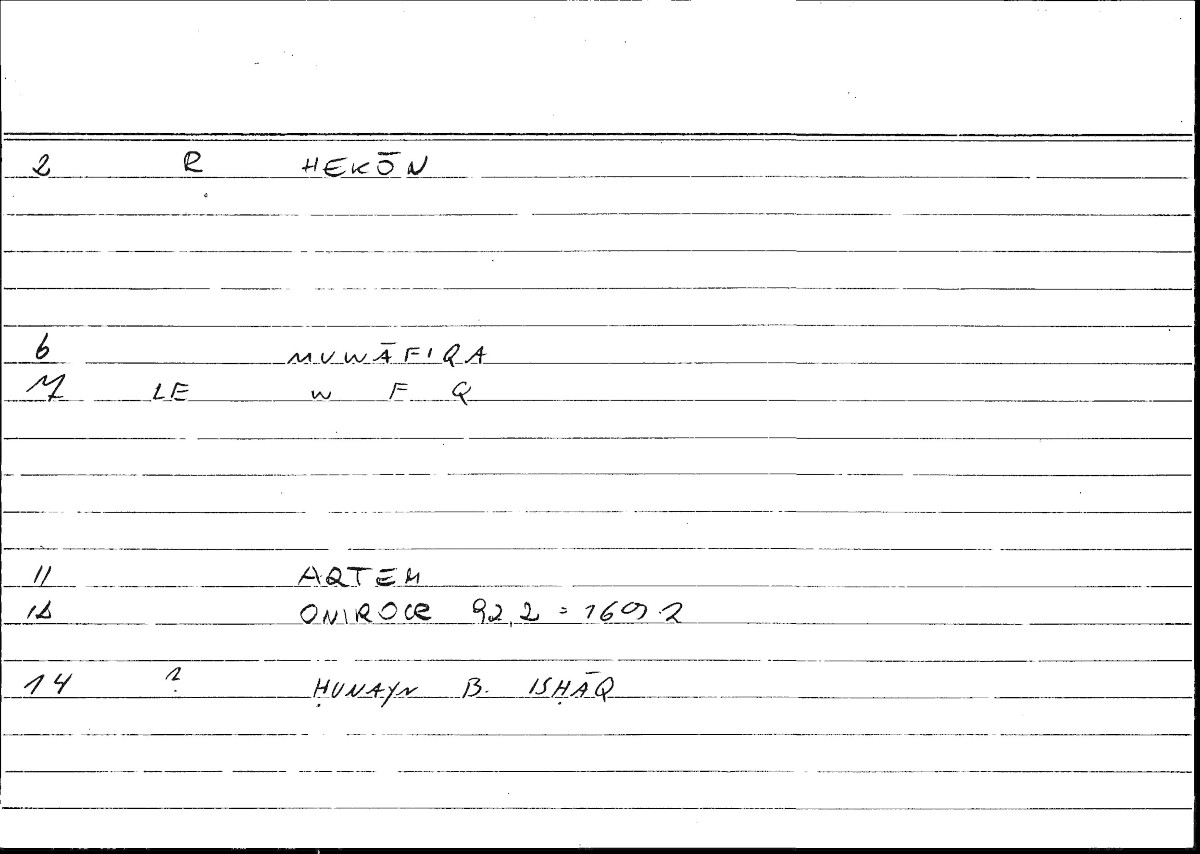 2 R HEKŌN
6 MUWĀFIQA
7 LE W F Q
11 ARTEM
12 ONIROCR 92,2 = 169 2
14 1 ḤUNAYN B. ISḤĀQ